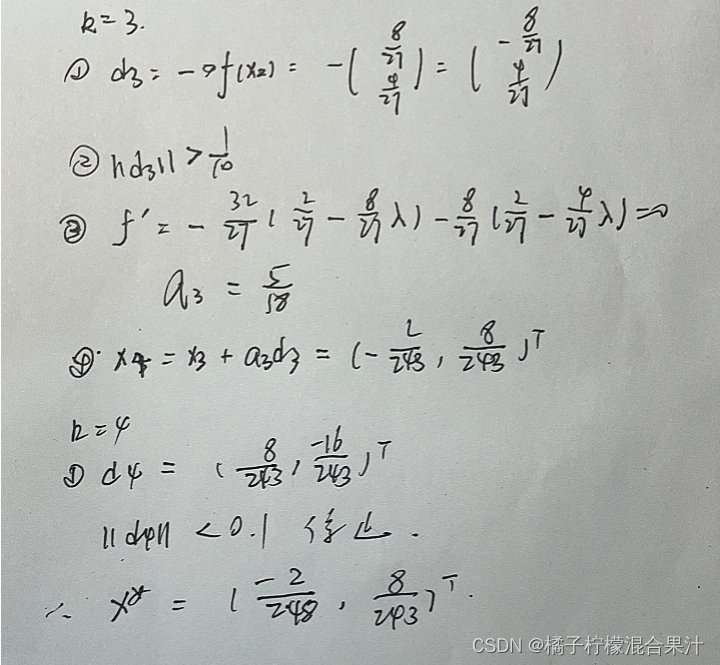 k=3.
① d₃ = -∇f(x₂) = -(8/27, 4/27) = (-8/27, 4/27)
② ||d₃|| > 1/10
③ f' = - 32/27 ( 2/27 - 8/27 λ) - 8/27 ( 2/27 - 4/27 λ) = 0
a₃ = 5/18
④ x₄ = x₃ + a₃d₃ = (- 2/243 , 8/243 )ᵀ
k=4
① d₄ = ( 8/243 , -16/243 )ᵀ
||d₄|| < 0.1 停止.
∴ x* = ( -2/248 , 8/243 )ᵀ.
CSDN @橘子柠檬混合果汁